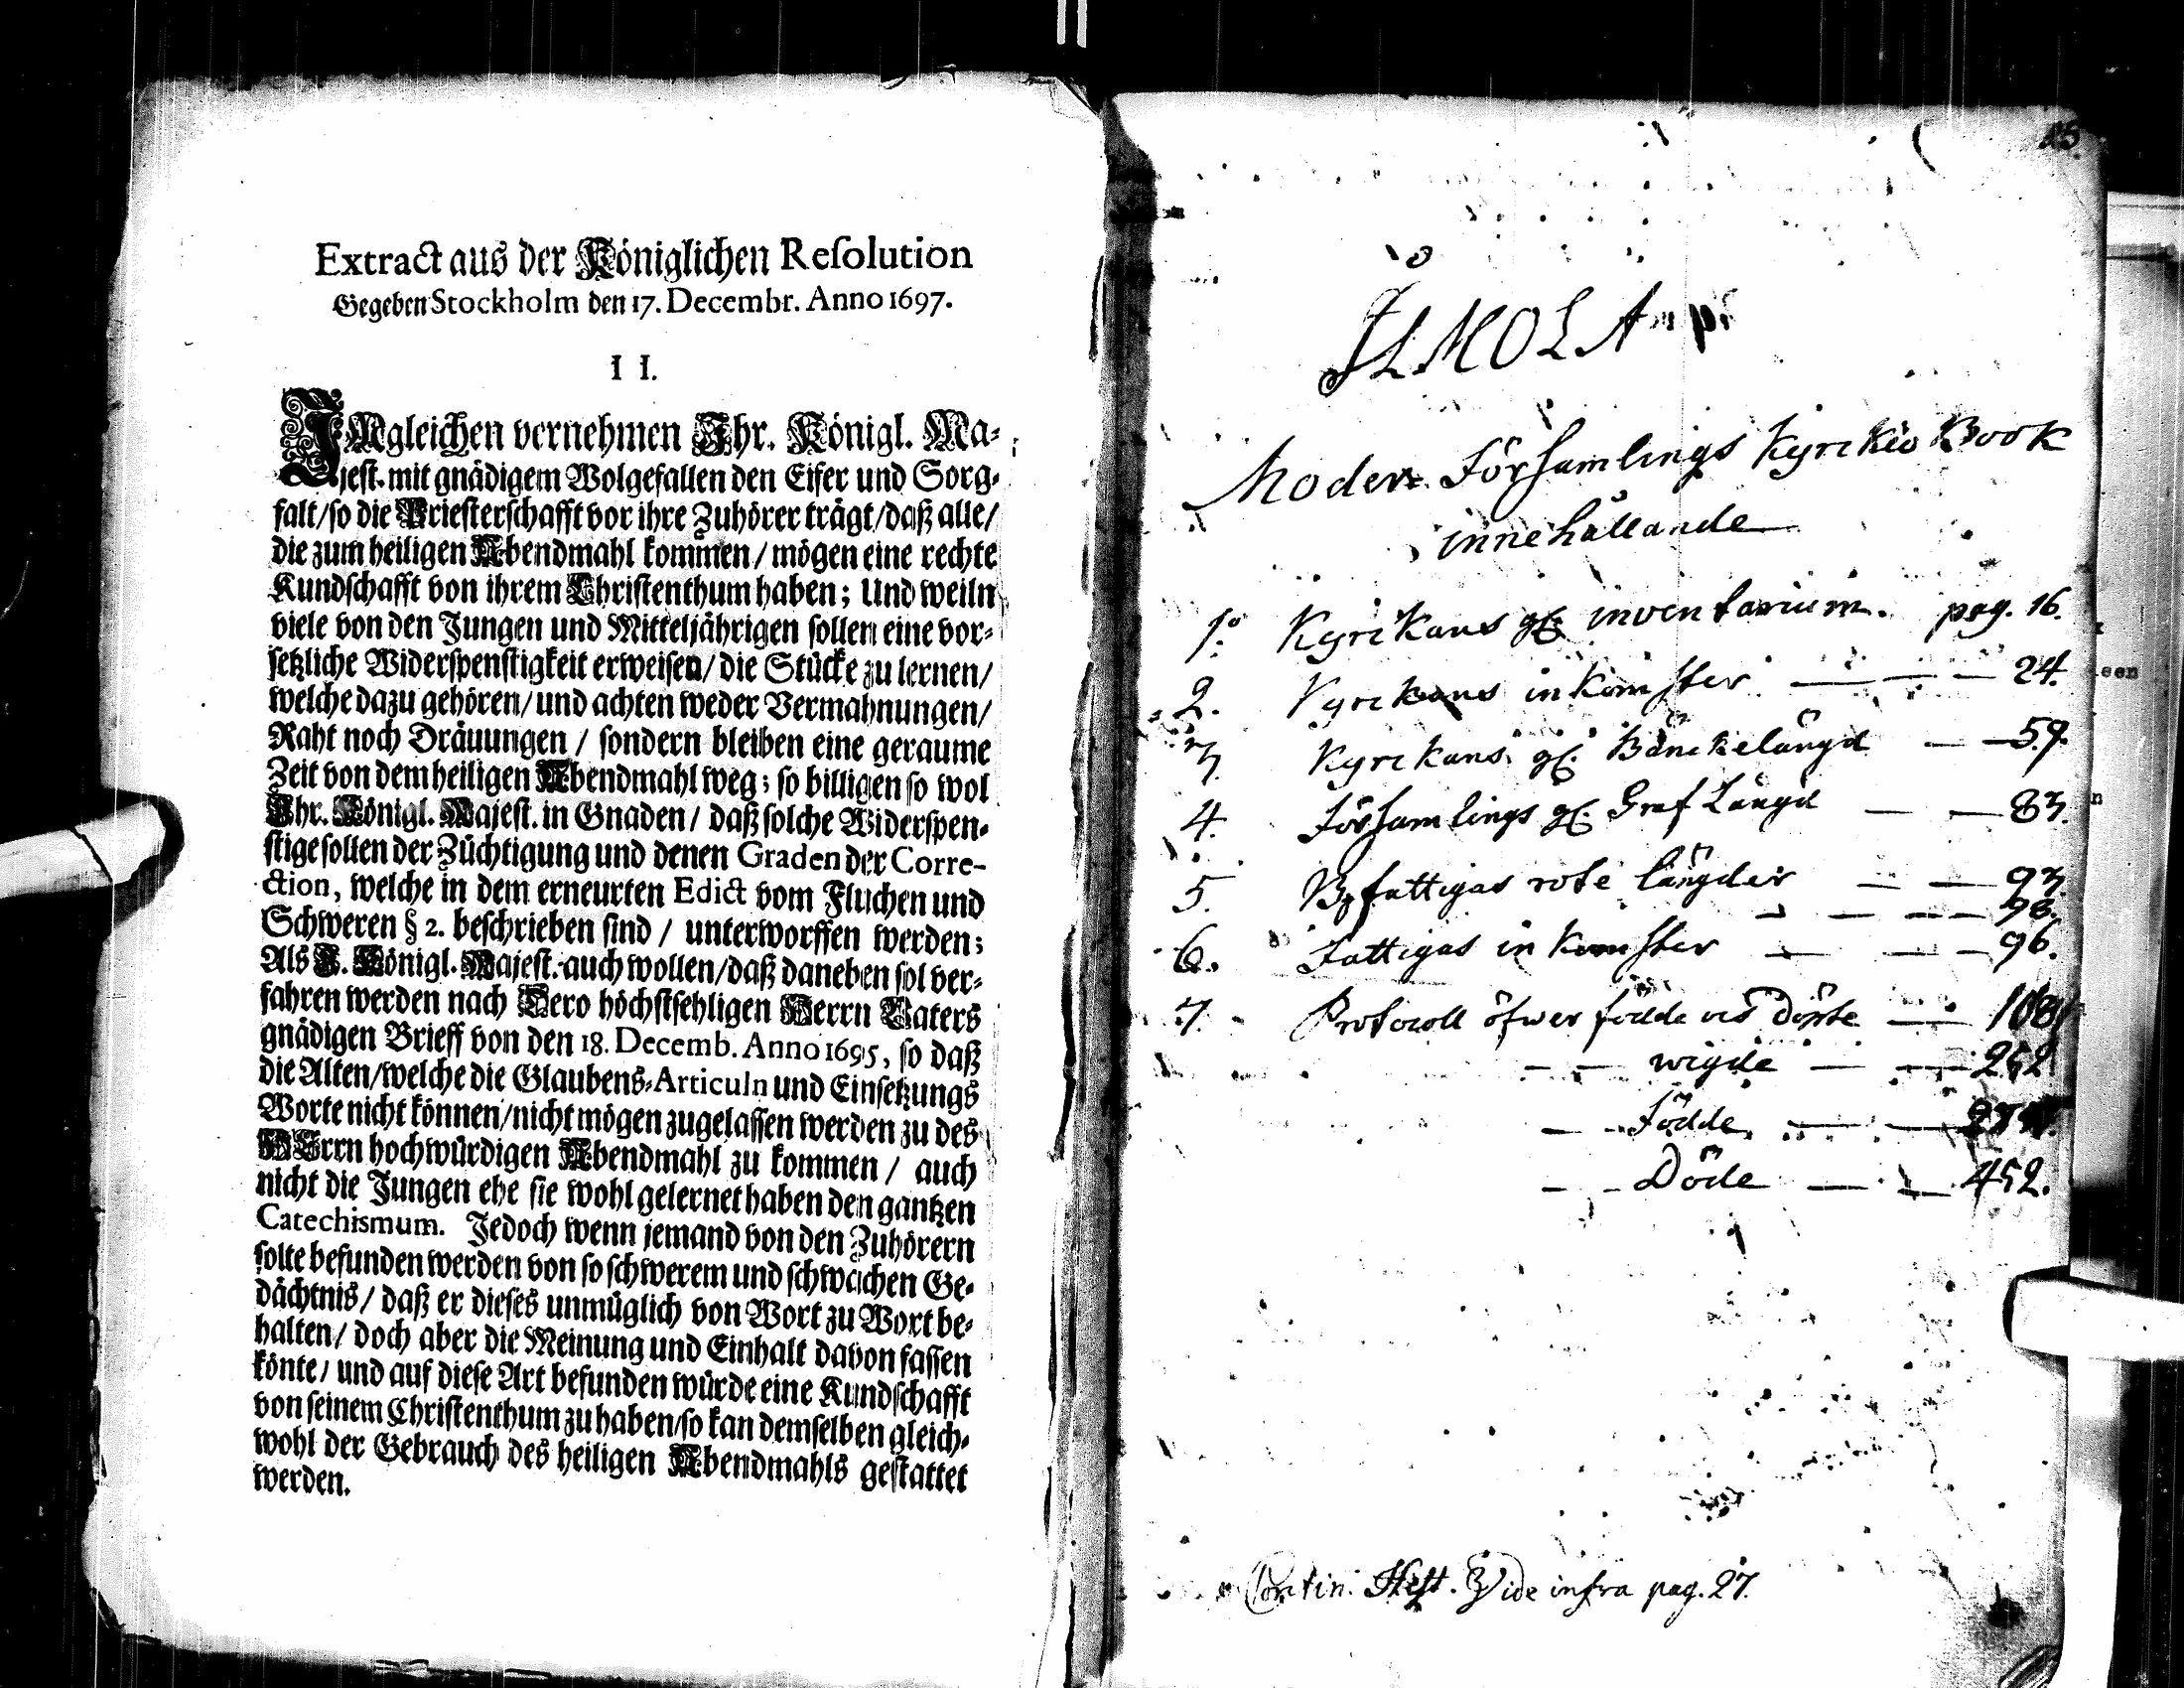 Extract aus der Königlichen Resolution
Gegeben Stockholm den 17. Decembr. Anno 1697.
I I.
IMgleichen vernehmen Ihr. Königl. Ma-
jest. mit gnädigem Wolgefallen den Eifer und Sorg-
falt/ so die Priesterschafft vor ihre Zuhörer trägt/ daß alle/
die zum heiligen Abendmahl kommen/ mögen eine rechte
Kundschafft von ihrem Christenthum haben; Und weiln
viele von den Jungen und Mitteljährigen sollen eine vor-
setzliche Widerspenstigkeit erweisen/ die Stücke zu lernen/
welche dazu gehören/ und achten weder Vermahnungen/
Raht noch Dräuungen / sondern bleiben eine geraume
Zeit von dem heiligen Abendmahl weg; so billigen so wol
Ihr. Königl. Majest. in Gnaden/ daß solche Widerspen-
stige sollen der Züchtigung und denen Graden der Corre-
ction, welche in dem erneurten Edict vom Fluchen und
Schweren § 2. beschrieben sind / unterworffen werden;
Als I. Königl. Majest. auch wollen/ daß daneben sol ver-
fahren werden nach Dero höchstsehligen Herrn Vaters
gnädigen Brieff von den 18. Decemb. Anno 1695, so daß
die Alten/ welche die Glaubens-Articuln und Einsetzungs
Worte nicht können/ nicht mögen zugelassen werden zu des
HErrn hochwürdigen Abendmahl zu kommen / auch
nicht die Jungen ehe sie wohl gelernet haben den gantzen
Catechismum. Jedoch wenn jemand von den Zuhörern
solte befunden werden von so schwerem und schwachen Ge-
dächtnis/ daß er dieses unmüglich von Wort zu Wort be-
halten/ doch aber die Meinung und Einhalt davon fassen
könte/ und auf diese Art befunden würde eine Kundschafft
von seinem Christenthum zu haben/ so kan demselben gleich-
wohl der Gebrauch des heiligen Abendmahls gestattet
werden.
ILMOLA
Moder Församlings Kyrkio Book
innehållande
1o Kyrckans inventarium. pag. 16.
2. Kyrckans inkomster — — — 24.
3 Kyrckans Bänckelängd — — 59.
4. Församlings Graf Längd — — 83.
5. fattigas rote längder — — 93.
— — — 98.
6. Fattigas inkomster — — 96.
7. Protocoll öfwer födde och Döpte — 108
— — wigde — — 252
— — Födde — —
— — Döde — — 452.
Contin. Hist. Vide infra pag. 27.